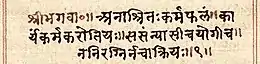 श्रीभगवा०॥अनाश्रितःकर्मफलं॥का
र्यंकर्मकरोतियः॥ससंन्यासीचयोगीच
ननिरग्निर्नचाक्रियः॥१॥